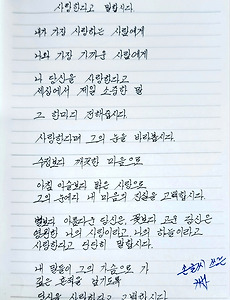 사랑한다고 말합시다.
내가 가장 사랑하는 사람에게
나와 가장 가까운 사람에게
나 당신을 사랑한다고
세상에서 제일 소중한 말
그 한마디 전해줍시다.
사랑한다며 그의 눈을 바라봅시다.
수정보다 깨끗한 마음으로
아침 이슬보다 맑은 사랑으로
그의 눈에다 내 마음의 진실을 고백합시다.
별보다 아름다운 당신은, 꽃보다 고운 당신은
영원한 나의 사랑이라고 나의 하늘이라고
사랑한다고 당당히 말합시다.
내 말들이 그의 가슴으로 가
깊은 흔적을 남기도록
당신을 사랑한다고 고백합시다.